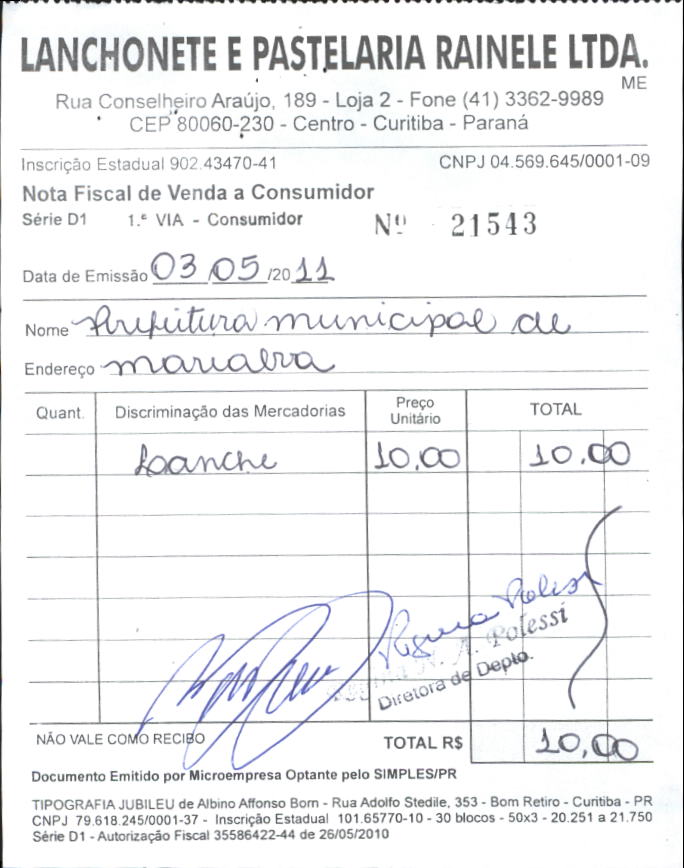 LANCHONETE E PASTELARIA RAINELE LTDA.
ME
Rua Conselheiro Araújo, 189 - Loja 2 - Fone (41) 3362-9989
CEP 80060-230 - Centro - Curitiba - Paraná
Inscrição Estadual 902.43470-41 CNPJ 04.569.645/0001-09
Nota Fiscal de Venda a Consumidor
Série D1 1.ª VIA - Consumidor Nº 21543
Data de Emissão 03/05/2011
Nome Prefeitura municipal de
Endereço marialva
Quant. Discriminação das Mercadorias Preço Unitário TOTAL
Lanche 10,00 10,00
N. A. Polessi
Diretora de Depto.
NÃO VALE COMO RECIBO TOTAL R$ 10,00
Documento Emitido por Microempresa Optante pelo SIMPLES/PR
TIPOGRAFIA JUBILEU de Albino Affonso Born - Rua Adolfo Stedile, 353 - Bom Retiro - Curitiba - PR
CNPJ 79.618.245/0001-37 - Inscrição Estadual 101.65770-10 - 30 blocos - 50x3 - 20.251 a 21.750
Série D1 - Autorização Fiscal 35586422-44 de 26/05/2010